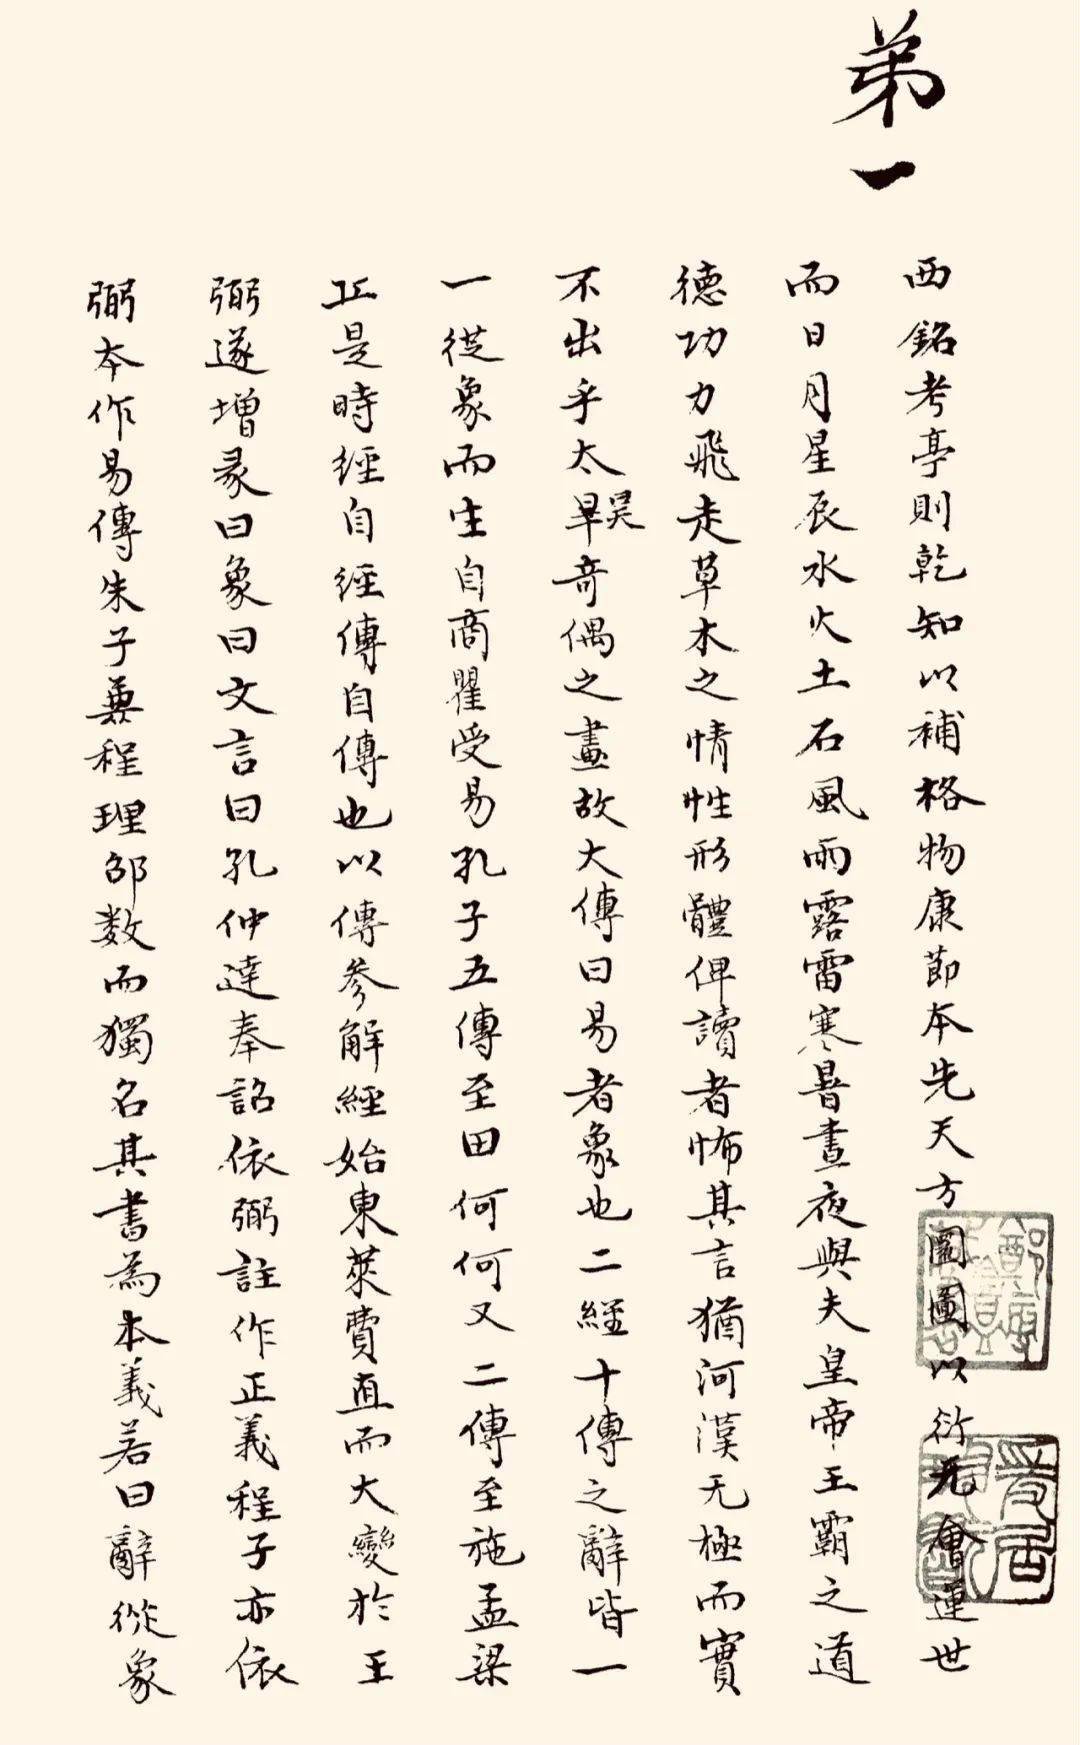 弟一
西銘考亭則乾知以補格物康節本先天方圖圖以衍元會運世
而日月星辰水火土石風雨露雷寒暑晝夜與夫皇帝王霸之道
德功力飛走草木之情性形體俾讀者怖其言猶河漢无極而實
不出乎太皞昊奇偶之畫故大傳曰易者象也二經十傳之辭皆一
一從象而生自商瞿受易孔子五傳至田何何又二傳至施孟梁
丘是時經自經傳自傳也以傳參解經始東萊費直而大變於王
弼遂增彖曰象曰文言曰孔仲達奉詔依弼註作正義程子亦依
弼本作易傳朱子兼程理邵数而獨名其書為本義若曰辭從象